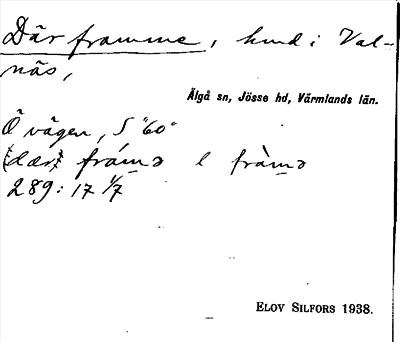 Där framme, hmd i Val-
näs,
Älgå sn, Jösse hd, Värmlands län.
Ö vägen, S "60"
(dær) fràmə l fràmə
289: 17 1/7
ELOV SILFORS 1938.